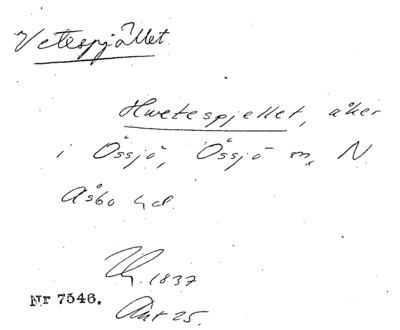 Vetespjället
Hwetespjellet, åker
i Össjö, Össjö sn, N.
Åsbo hd.
1837
Nr 7546. Akt 25.